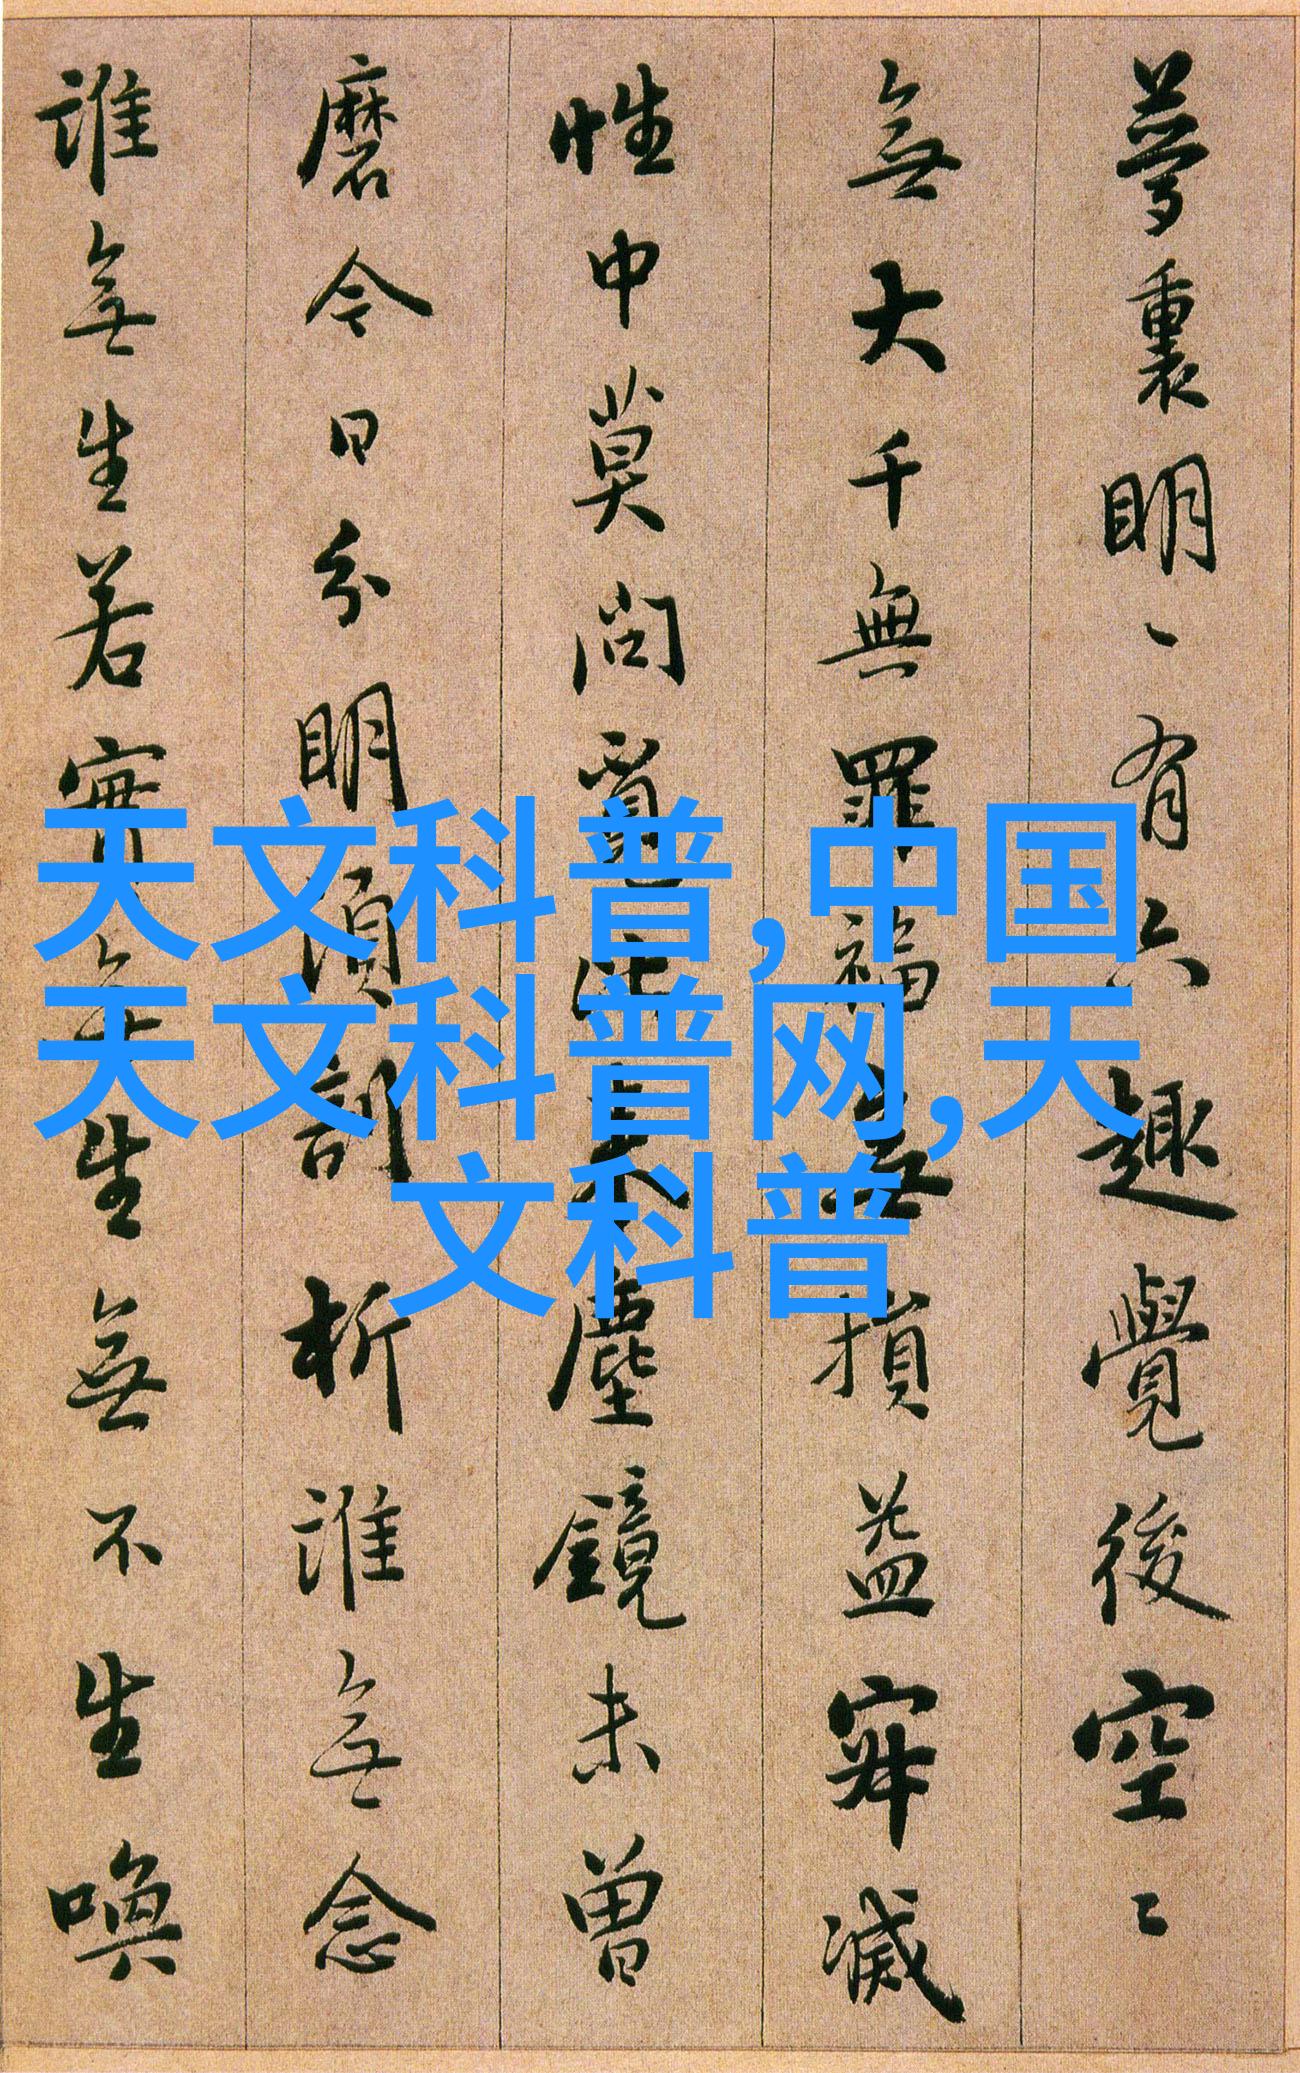 夢裏明〻有六趣覺後空〻
無大千無罪福無損益寂滅
性中莫問覓比來塵鏡未曾
磨今日分明須剖析誰無念
誰無生若實無生無不生喚
天文科普,中国
天文科普网,天
文科普